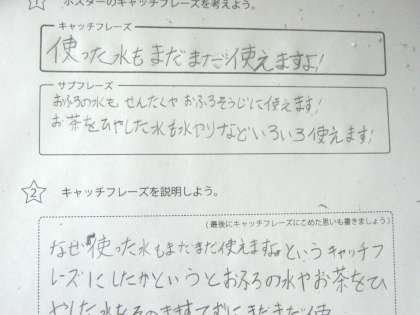 1 ポスターのキャッチフレーズを考えよう。
キャッチフレーズ
使った水もまだまだ使えますよ!
サブフレーズ
おふろの水も せんたくや おふろそうじに使えます!
お茶をひやした水も水やりなどいろいろ使えます!
2 キャッチフレーズを説明しよう。
(最後にキャッチフレーズにこめた思いも書きましょう)
なぜ使った水もまだまだ使えますよというキャッチフ
レーズにしたかというとおふろの水やお茶をひ
やした水をそのまますてずにまだまだ使